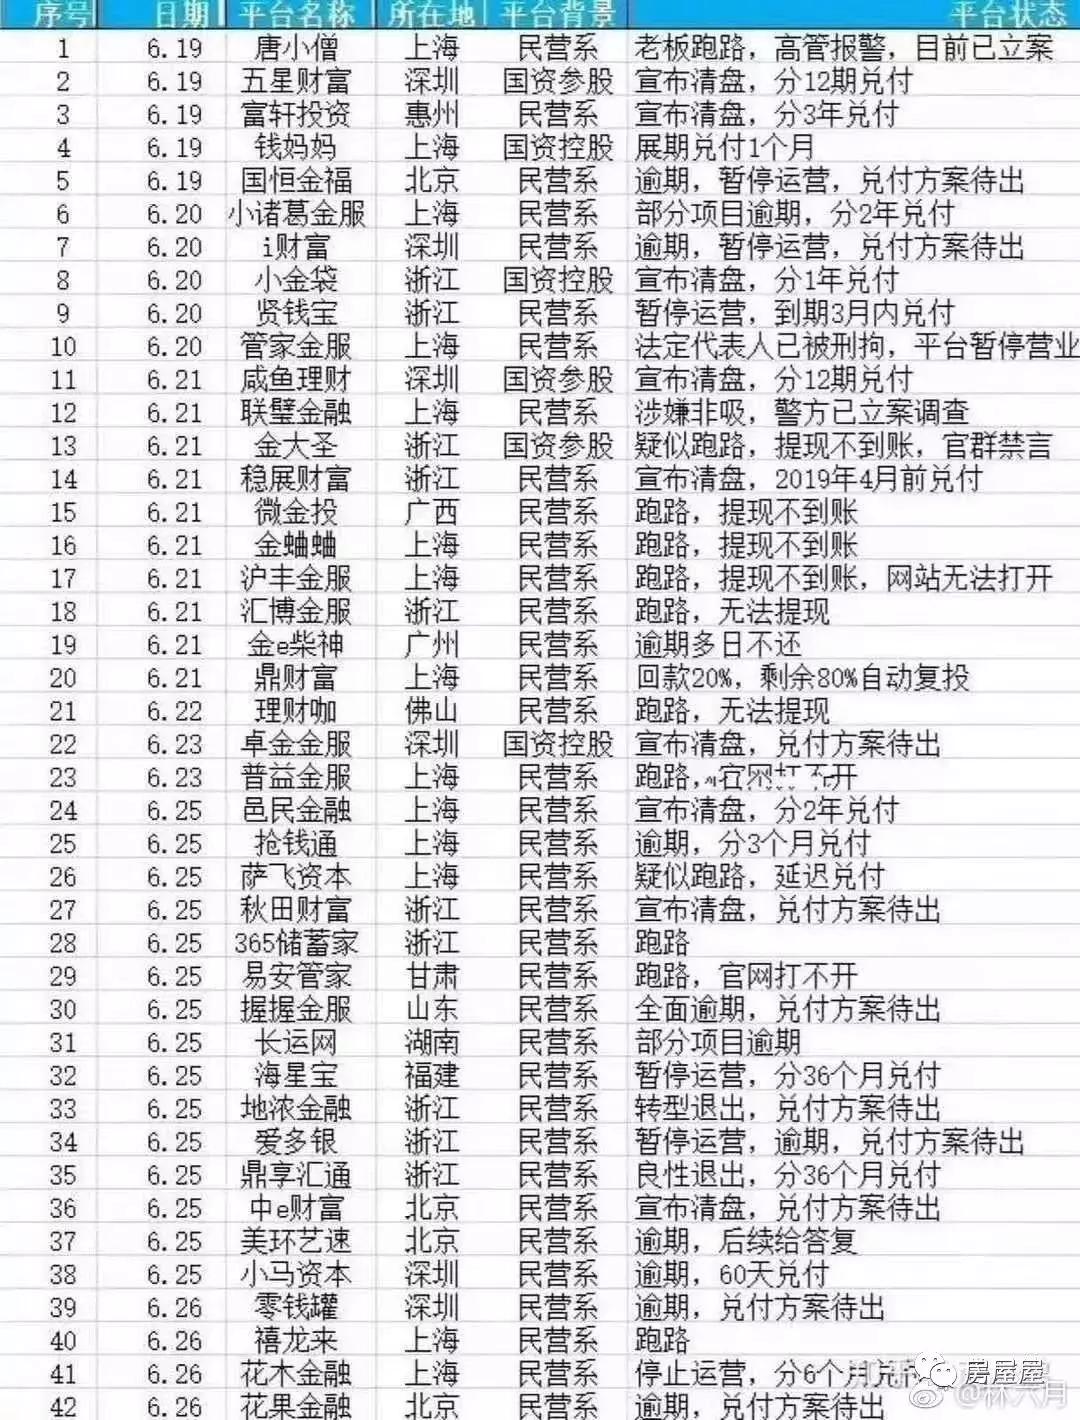 序号 日期 平台名称 所在地 平台背景 平台状态
1 6.19 唐小僧 上海 民营系 老板跑路，高管报警，目前已立案
2 6.19 五星财富 深圳 国资参股 宣布清盘，分12期兑付
3 6.19 富轩投资 惠州 民营系 宣布清盘，分3年兑付
4 6.19 钱妈妈 上海 国资控股 展期兑付1个月
5 6.19 国恒金福 北京 民营系 逾期，暂停运营，兑付方案待出
6 6.20 小诸葛金服 上海 民营系 部分项目逾期，分2年兑付
7 6.20 i财富 深圳 民营系 逾期，暂停运营，兑付方案待出
8 6.20 小金袋 浙江 国资控股 宣布清盘，分1年兑付
9 6.20 贤钱宝 浙江 民营系 暂停运营，到期3月内兑付
10 6.20 管家金服 上海 民营系 法定代表人已被刑拘，平台暂停营业
11 6.21 咸鱼理财 深圳 国资参股 宣布清盘，分12期兑付
12 6.21 联璧金融 上海 民营系 涉嫌非吸，警方已立案调查
13 6.21 金大圣 浙江 国资参股 疑似跑路，提现不到账，官群禁言
14 6.21 稳展财富 浙江 民营系 宣布清盘，2019年4月前兑付
15 6.21 微金投 广西 民营系 跑路，提现不到账
16 6.21 金蛐蛐 上海 民营系 跑路，提现不到账
17 6.21 沪丰金服 上海 民营系 跑路，提现不到账，网站无法打开
18 6.21 汇博金服 浙江 民营系 跑路，无法提现
19 6.21 金e柴神 广州 民营系 逾期多日不还
20 6.21 鼎财富 上海 民营系 回款20%，剩余80%自动复投
21 6.22 理财咖 佛山 民营系 跑路，无法提现
22 6.23 卓金金服 深圳 国资控股 宣布清盘，兑付方案待出
23 6.23 普益金服 上海 民营系 跑路，官网打不开
24 6.25 邑民金融 上海 民营系 宣布清盘，分2年兑付
25 6.25 抢钱通 上海 民营系 逾期，分3个月兑付
26 6.25 萨飞资本 上海 民营系 疑似跑路，延迟兑付
27 6.25 秋田财富 浙江 民营系 宣布清盘，兑付方案待出
28 6.25 365储蓄家 浙江 民营系 跑路
29 6.25 易安管家 甘肃 民营系 跑路，官网打不开
30 6.25 握握金服 山东 民营系 全面逾期，兑付方案待出
31 6.25 长运网 湖南 民营系 部分项目逾期
32 6.25 海星宝 福建 民营系 暂停运营，分36个月兑付
33 6.25 地浓金融 浙江 民营系 转型退出，兑付方案待出
34 6.25 爱多银 浙江 民营系 暂停运营，逾期，兑付方案待出
35 6.25 鼎享汇通 浙江 民营系 良性退出，分36个月兑付
36 6.25 中e财富 北京 民营系 宣布清盘，兑付方案待出
37 6.25 美环艺速 北京 民营系 逾期，后续给答复
38 6.25 小马资本 深圳 民营系 逾期，60天兑付
39 6.26 零钱罐 深圳 民营系 逾期，兑付方案待出
40 6.26 禧龙来 上海 民营系 跑路
41 6.26 花木金融 上海 民营系 停止运营，分6个月兑
房屋屋
42 6.26 花果金融 北京 民营系 逾期，兑付方案待出
@林六月